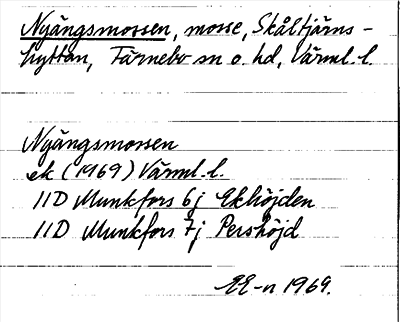 Nyängsmossen, mosse, Skåltjärns-
hyttan, Färnebo sn o. hd, Värml. l.
Nyängsmossen
ek (1969) Värml. l.
11D Munkfors 6j Ekhöjden
11D Munkfors 7j Pershöjd
EE-n 1969.